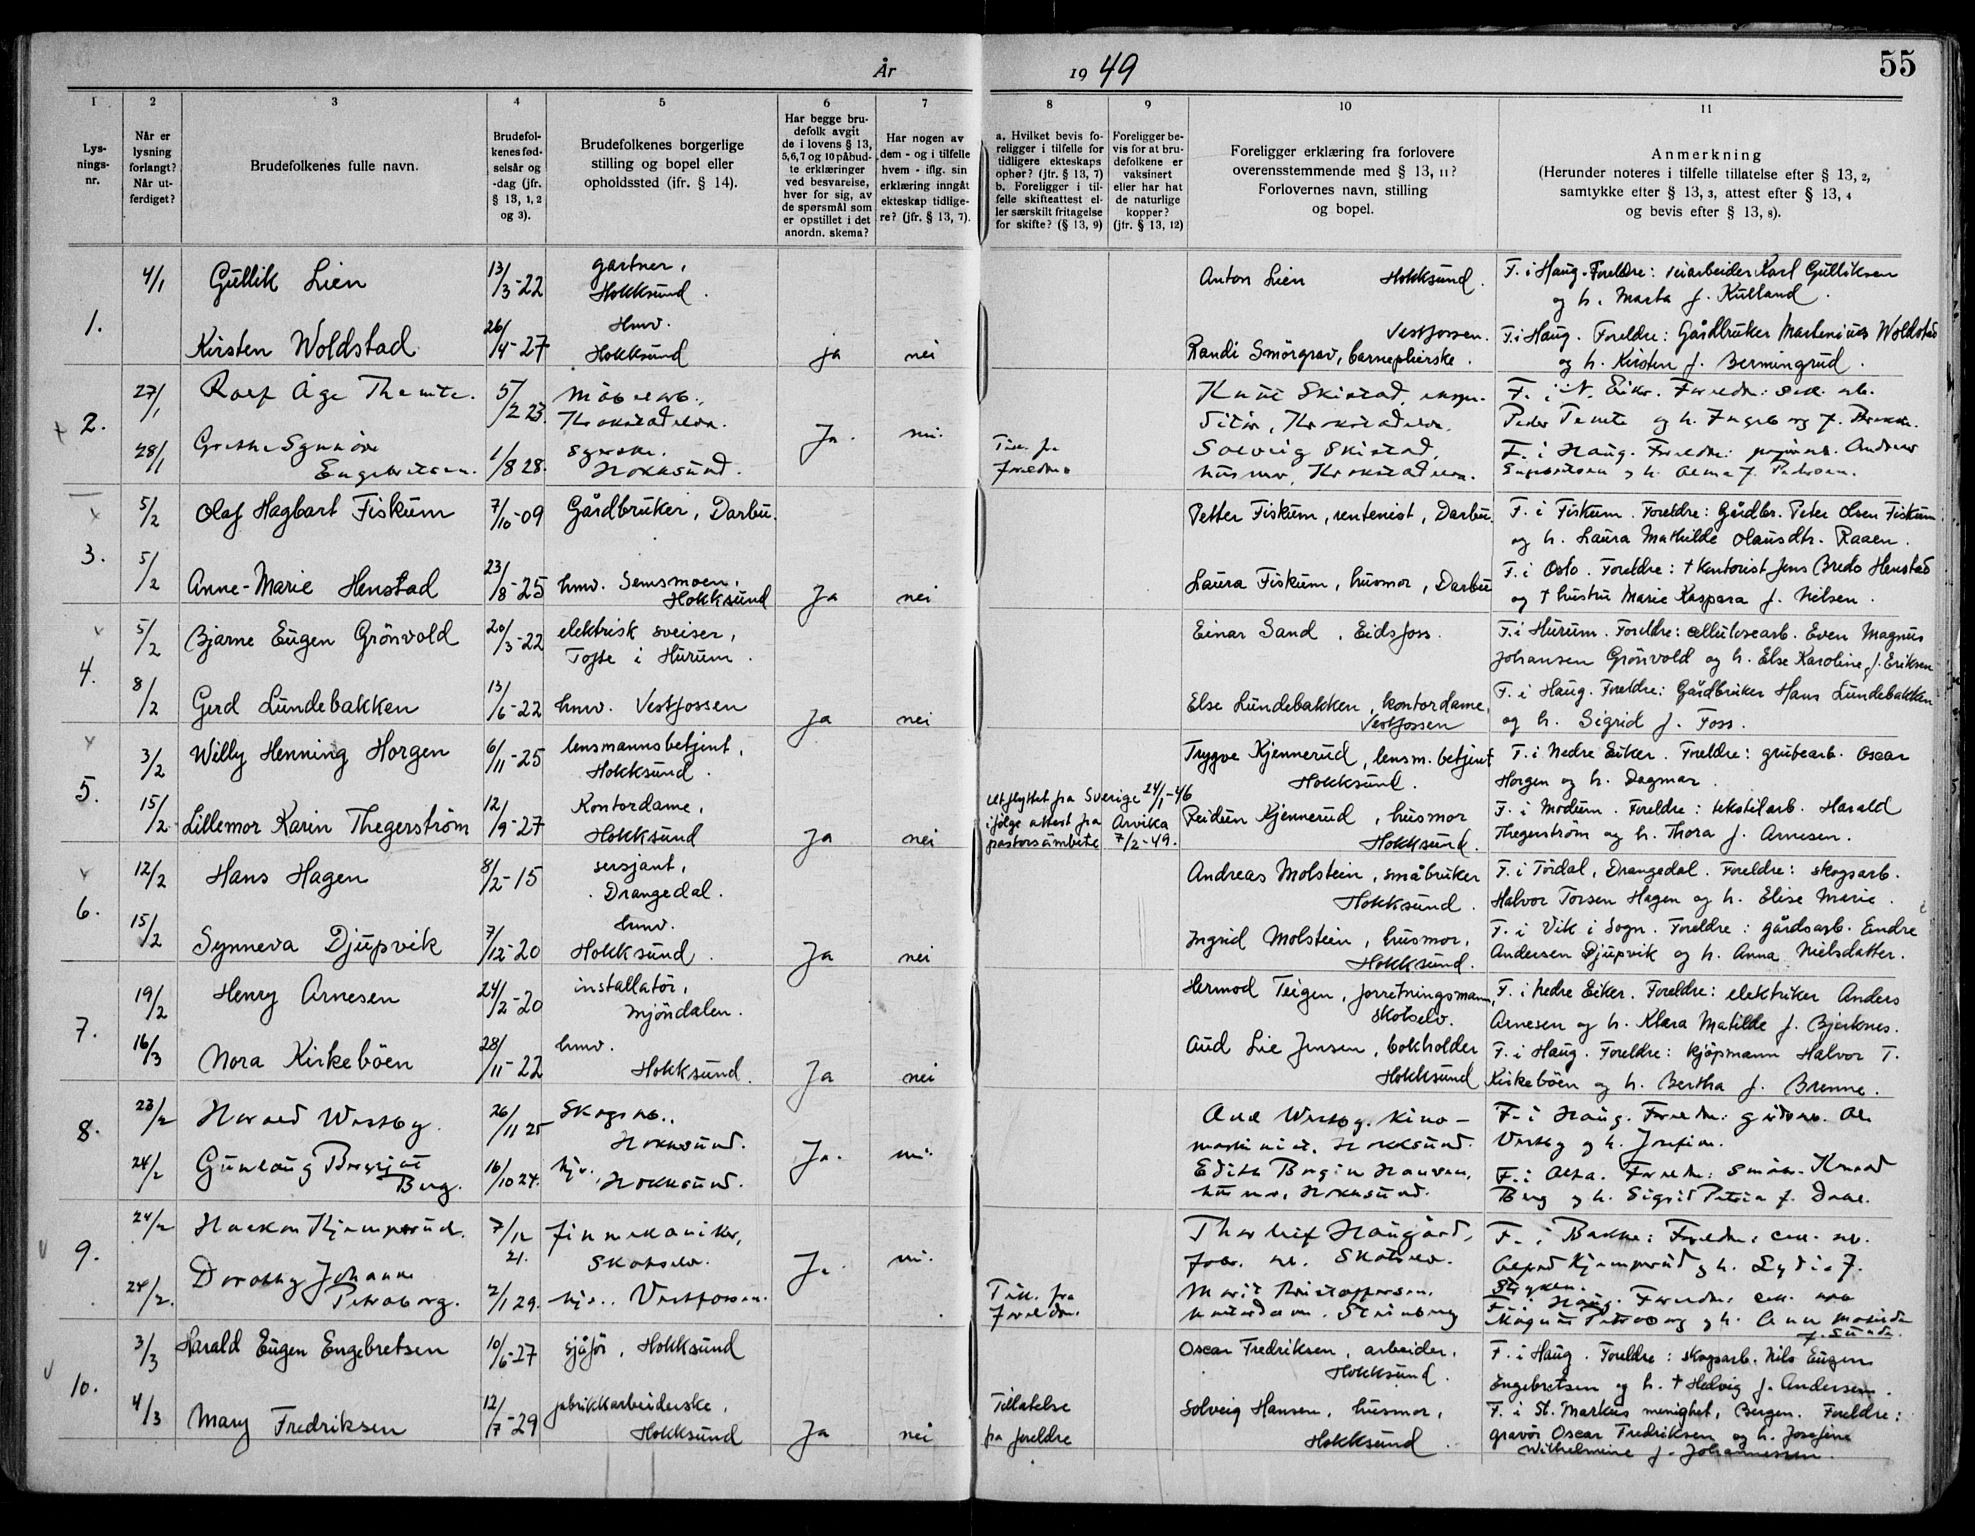 År 1949
55
1
2
3
4
5
6
7
8
9
10
11
Lys-
nings-
nr.
Når er
lysning
forlangt?
Når ut-
ferdiget?
Brudefolkenes fulle navn.
Brudefol-
kenes fød-
selsår og
-dag (jfr.
§ 13, 1, 2
og 3).
Brudefolkenes borgerlige
stilling og bopel eller
opholdssted (jfr. § 14).
Har begge bru-
defolk avgit
de i lovens § 13,
5,6,7 og 10 påbud-
te erklæringer
ved besvarelse,
hver for sig, av
de spørsmål som
er opstillet i det
anordn. skema?
Har nogen av
dem - og i tilfelle
hvem - iflg. sin
erklæring inngått
ekteskap tidlige-
re? (jfr. § 13, 7).
a. Hvilket bevis fo-
religger i tilfelle for
tidligere ekteskaps
ophør? (jfr. § 13, 7)
b. Foreligger i til-
felle skifteattest el-
ler særskilt fritagelse
for skifte? (§ 13, 9)
Foreligger be-
vis for at bru-
defolkene er
vaksinert
eller har hat
de naturlige
kopper?
(jfr. § 13, 12)
Foreligger erklæring fra forlovere
overensstemmende med § 13, 11?
Forlovernes navn, stilling
og bopel.
Anmerkning
(Herunder noteres i tilfelle tillatelse efter § 13, 2,
samtykke efter § 13, 3, attest efter § 13, 4
og bevis efter § 13, 8).
1.
4/1 Gullik Lien 13/3-22 gartner,
Hokksund.
Anton Lien Hokksund.
F. i Haug. Foreldre: veiarbeider Karl Gulliksen
og h. Marta f. Kulland.
Kirsten Woldstad 26/4-27 hmv.
Hokksund ja nei
Vestfossen.
Randi Smörgrav, barnepleierske.
F. i Haug. Foreldre: Gårdbruker Martenius Woldstad
og h. Kirsten f. Bermingrud.
2.
27/1 Rolf Åge Themte. 5/2 23. Möbelarb.,
Krokstadelva.
Knut Skistad, ekspe-
ditör, Krokstadelva.
F. i N. Eiker. Foreldre:
Peder Temte og h. Ingeborg f.
28/1 Grethe Synnöve
Engebretsen. 1/8 28. Syerske.
Hokksund. Ja. nei.
Till. fra
foreldre
Solveig Skistad,
husmor, Krokstadelva.
F. i Haug. Foreldre: Andreas
Engebretsen og h. Alma f. Pedersen.
3.
5/2 Olaf Hagbart Fiskum 7/10-09 Gårdbruker, Darbu.
Petter Fiskum, rentenist, Darbu.
F. i Fiskum. Foreldre: Gårdbr. Peter Olsen Fiskum
og h. Laura Mathilde Olausdtr. Raaen.
5/2 Anne-Marie Henstad 23/8-25 hmv. Semsmoen,
Hokksund Ja nei
Laura Fiskum, husmor, Darbu
F. i Oslo. Foreldre: † Kontorist Jens Bredo Henstad
og † hustru Marie Kaspara f. Nilsen.
4.
5/2 Bjarne Eugen Grönvold 20/3-22 elektrisk sveiser,
Tofte i Hurum.
Einar Sand, Eidsfoss.
F. i Hurum. Foreldre: cellulosearb. Even Magnus
Johansen Grönvold og h. Else Karoline f. Eriksen
8/2 Gerd Lundebakken 13/6-22 hmv. Vestfossen Ja nei
Else Lundebakken, kontordame,
Vestfossen
F. i Haug. Foreldre: Gårdbruker Hans Lundebakken
og h. Sigrid f. Foss.
5.
3/2 Willy Henning Horgen 6/11-25 lensmannsbetjent,
Hokksund.
Trygve Kjennerud, lensm. betjent
Hokksund.
F. i Nedre Eiker. Foreldre: grubearb. Oscar
Horgen og h. Dagmar.
15/2 Lillemor Karin Thegerström 12/9-27 Kontordame,
Hokksund Ja nei
Utflyttet fra Sverige 24/1-46
ifølge attest fra Arvika
pastorsämbete 7/2-49.
Reidun Kjennerud, husmor
Hokksund.
F. i Modum. Foreldre: tekstilarb. Harald
Thegerström og h. Thora f. Arnesen.
6.
12/2 Hans Hagen 8/2-15 sersjant,
Drangedal.
Andreas Molstein, småbruker
Hokksund.
F. i Tördal, Drangedal. Foreldre: skogsarb.
Halvor Torsen Hagen og h. Elise Marie.
15/2 Synneva Djupvik 7/12-20 hmv.
Hokksund. Ja nei
Ingrid Molstein, husmor,
Hokksund.
F. i Vik i Sogn. Foreldre: gårdsarb. Endre
Andersen Djupvik og h. Anna Nielsdatter.
7.
19/2 Henry Arnesen 24/2-20 installatör,
Mjöndalen.
Hermod Teigen, forretningsmann,
Skotselv.
F. i Nedre Eiker. Foreldre: elektriker Anders
Arnesen og h. Klara Matilde f. Bjerknes.
16/3 Nora Kirkeböen 28/11-22 hmv.
Hokksund. Ja nei
Aud Lie Jensen, bokholder
Hokksund
F. i Haug. Foreldre: kjöpmann Halvor T.
Kirkeböen og h. Bertha f. Brenne.
8.
23/2 Harald Westby. 26/11 25 Skogsarb.,
Hokksund.
Westby, kino-
maskinist, Hokksund.
F. i Haug. Foreldre:
Westby og h. Josefine.
24/2 Gunlaug
Berg. 16/10 24. hjv.
Hokksund. Ja. nei.
Edith
husmor, Hokksund.
F. i Foreldre:
Berg og h. Sigrid Petria f.
9.
24/2 Haakon Kjemperud. 7/12 21. finmekaniker,
Skotselv. Ja. nei.
Thorleif Haugård,
fabr. arb. Skotselv.
F. i Bakke: Foreldre: cell. arb.
Kjemperud og h. Lydia f.
24/2. Dorothy Johanne
Petraborg. 2/1 29. hjv. Vestfossen.
Till. fra
foreldre.
Marit Kristoffersen,
kontordame. Steinberg
F. i Haug. Foreldre: cell. arb.
Magnus Petraborg og h.
10.
3/3 Harald Eugen Engebretsen 10/6-27 sjåför, Hokksund
Oscar Fredriksen, arbeider,
Hokksund.
F. i Haug. Foreldre: skogsarb. Nils Eugen
Engebretsen og h. † Helvig f. Andersen.
4/3 Mary Fredriksen 12/7-29 fabrikkarbeiderske,
Hokksund Ja nei
Tillatelse
fra foreldre
Solveig Hansen, husmor,
Hokksund.
F. i St. Markus menighet, Bergen. Foreldre:
gravör Oscar Fredriksen og h. Josefine
Wilhelmine f. Johannessen.